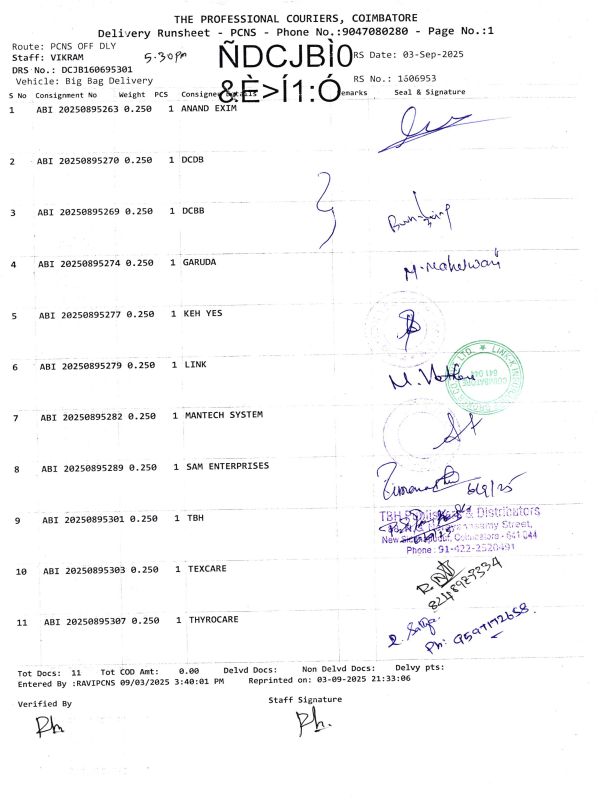 THE PROFESSIONAL COURIERS, COIMBATORE
Delivery Runsheet - PCNS - Phone No.:9047080280 - Page No.:1
Route: PCNS OFF DLY
Staff: VIKRAM 5.30pm ÑDCJBÌ0 RS Date: 03-Sep-2025
DRS No.: DCJB160695301
Vehicle: Big Bag Delivery &È>Í1:Ó RS No.: 1606953
S No Consignment No Weight PCS Consignee Details Remarks Seal & Signature
1 ABI 20250895263 0.250 1 ANAND EXIM
2 ABI 20250895270 0.250 1 DCDB
3 ABI 20250895269 0.250 1 DCBB
4 ABI 20250895274 0.250 1 GARUDA
M. Maheswari
5 ABI 20250895277 0.250 1 KEH YES
6 ABI 20250895279 0.250 1 LINK
COIMBATORE 641 044
7 ABI 20250895282 0.250 1 MANTECH SYSTEM
8 ABI 20250895289 0.250 1 SAM ENTERPRISES
6/9/25
9 ABI 20250895301 0.250 1 TBH
TBH Publishers & Distributors
Street,
Coimbatore - 641 044
Phone : 91-422-2520491
10 ABI 20250895303 0.250 1 TEXCARE
8248987334
11 ABI 20250895307 0.250 1 THYROCARE
Ph: 9597172658.
Tot Docs: 11 Tot COD Amt: 0.00 Delvd Docs: Non Delvd Docs: Delvy pts:
Entered By :RAVIPCNS 09/03/2025 3:40:01 PM Reprinted on: 03-09-2025 21:33:06
Verified By Staff Signature